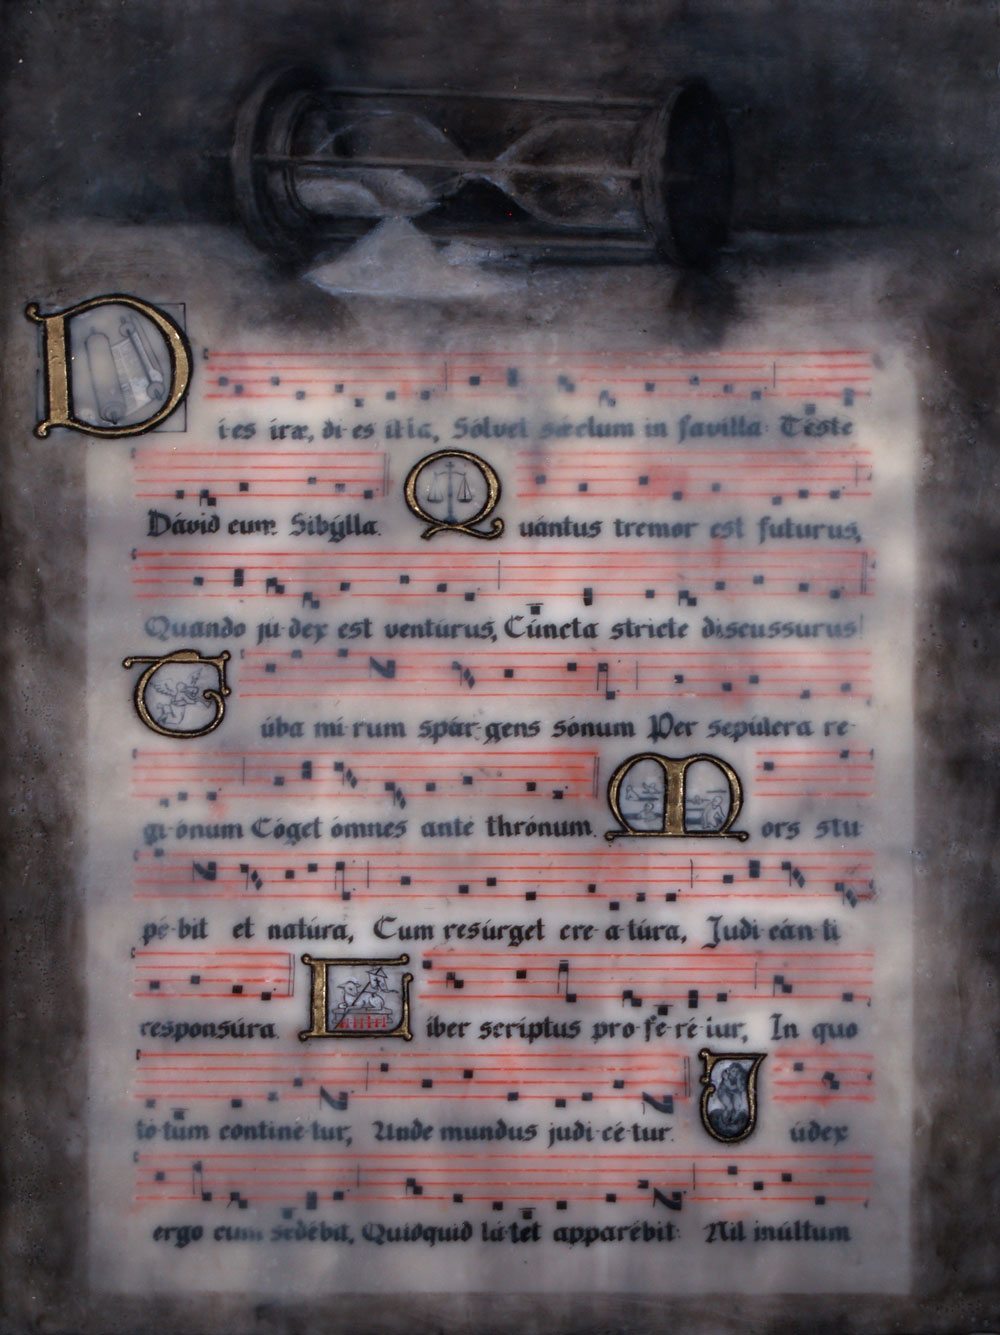 Di-es iræ, di-es illa, Sólvet sæclum in favílla: Teste
Dávid cum Sibýlla. Quántus tremor est futúrus,
Quando ju-dex est ventúrus, Cúncta stricte discussurus!
Túba mí-rum spár-gens sónum Per sepúlcra re-
gi-ónum Cóget ómnes ante thrónum. Mors stu
pé-bit et natúra, Cum resúrget cre-a-túra, Judi-cán-ti
responsúra. Líber scríptus pro-fe-ré-tur, In quo
tó-tum continé-tur, Unde mundus judi-cé-tur. Júdex
ergo cum sedébit, Quidquid lá-tet apparébit: Nil inúltum